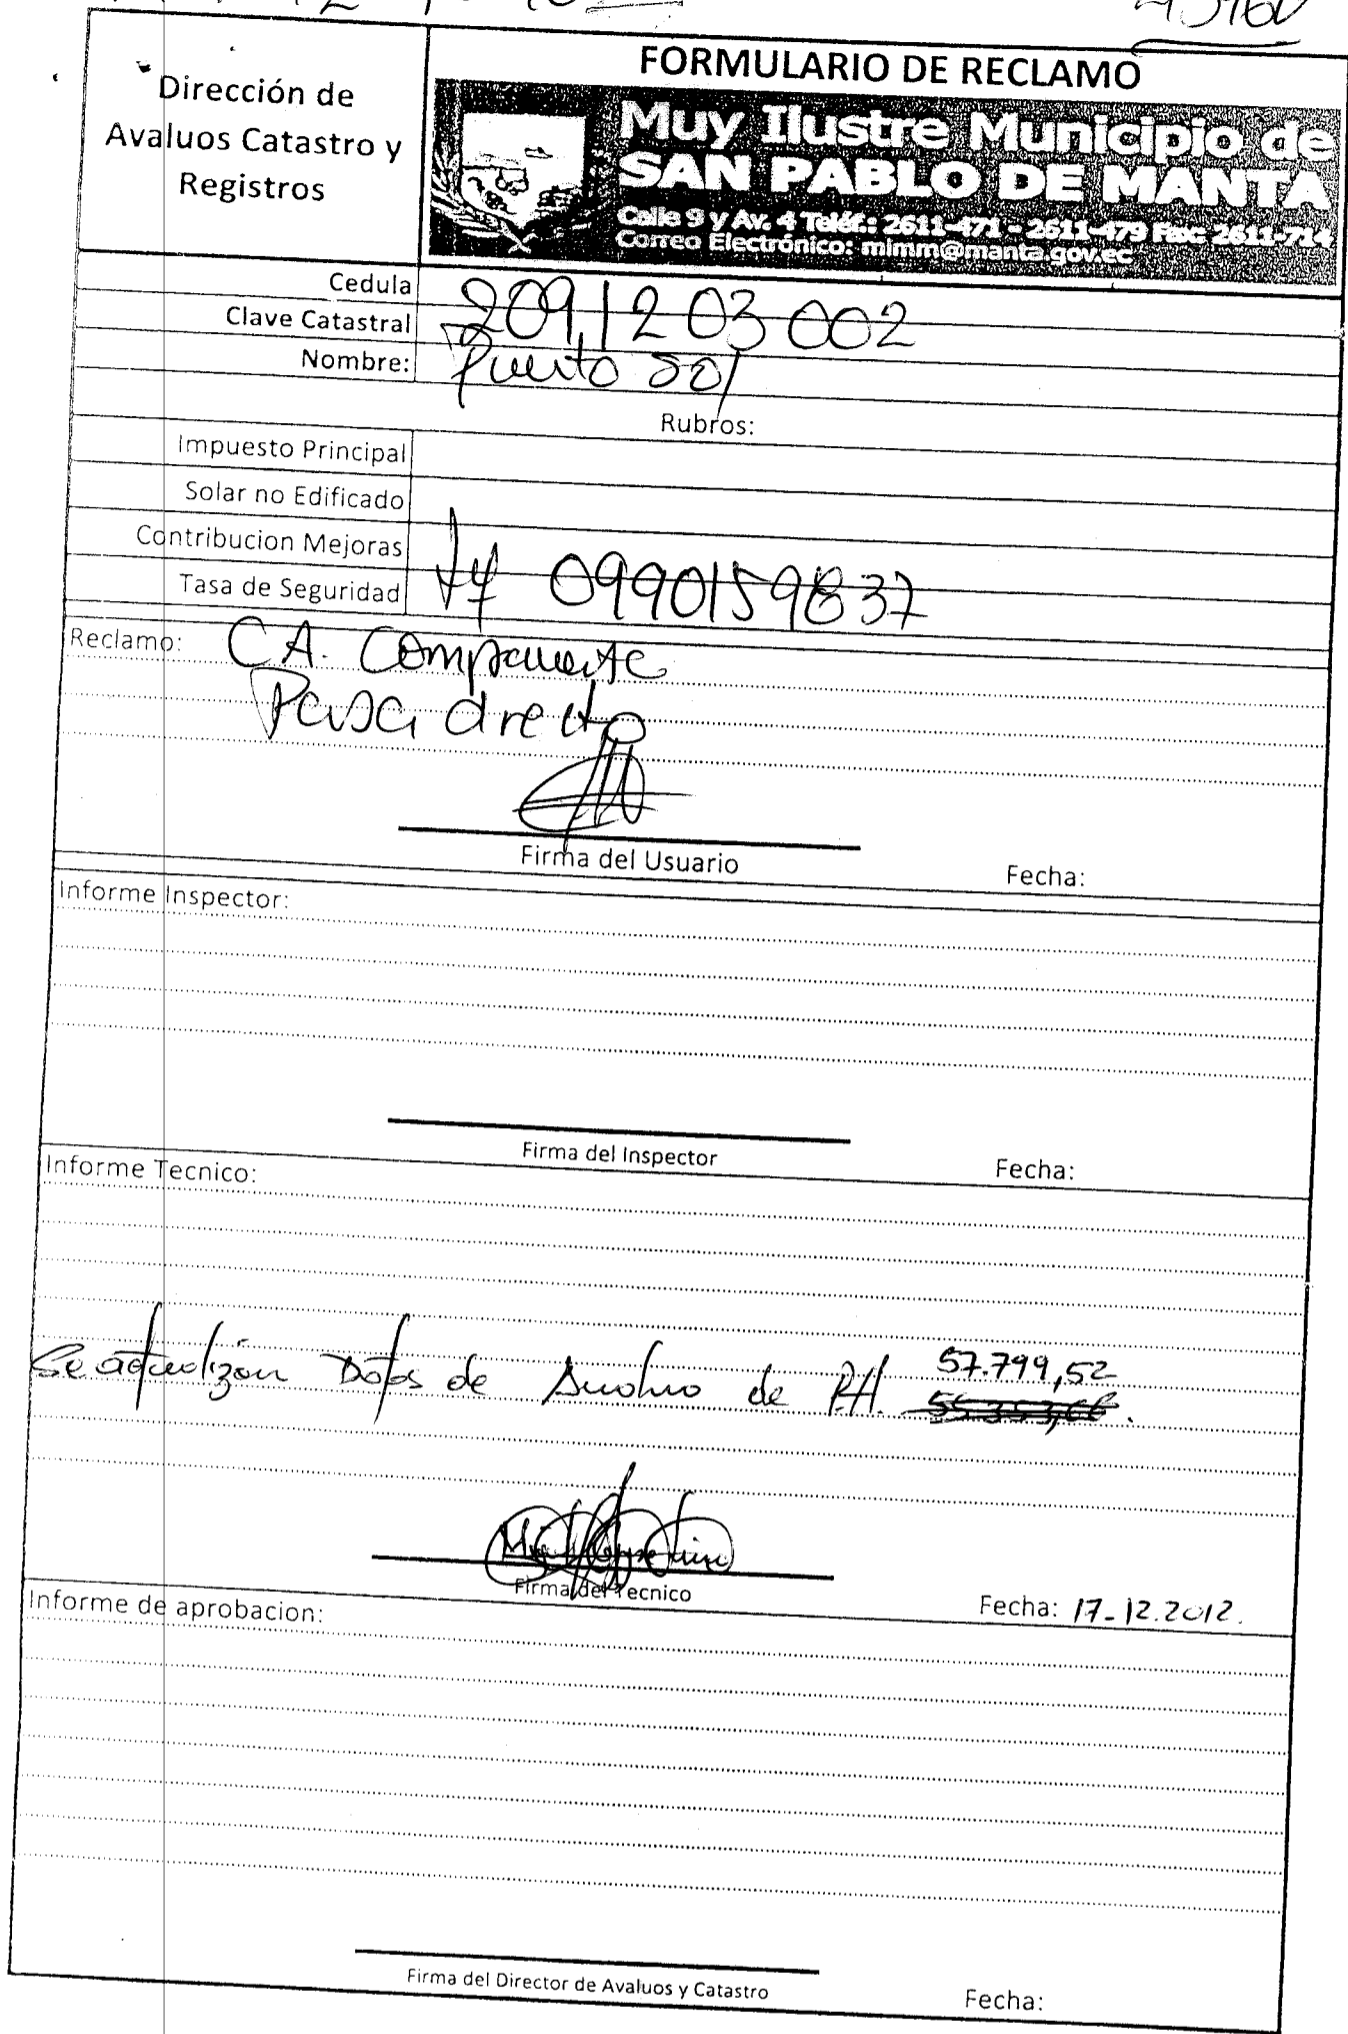 FORMULARIO DE RECLAMO
Dirección de
Avaluos Catastro y
Registros
Muy Ilustre Municipio de
SAN PABLO DE MANTA
Calle 9 y Av. 4 Teléf.: 2611-471 - 2611-479 Fax: 2611-714
Correo Electrónico: mimm@manta.gov.ec
Cedula
Clave Catastral 209,1203002
Nombre: Puerto Sol
Rubros:
Impuesto Principal
Solar no Edificado
Contribucion Mejoras
Tasa de Seguridad 0990159837
Reclamo: C.A. Compraventa
Pasa directo
Firma del Usuario Fecha:
Informe Inspector:
Firma del Inspector Fecha:
Informe Tecnico:
57.799,52
Se actualizan Datos de Avaluo de P.H. 55.353,66.
Firma del Tecnico Fecha: 17-12.2012.
Informe de aprobacion:
Firma del Director de Avaluos y Catastro Fecha: